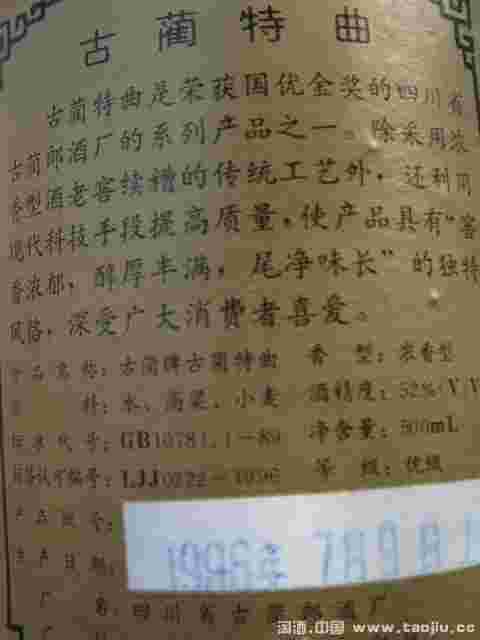 古蔺特曲
古蔺特曲是荣获国优金奖的四川省
古蔺郎酒厂的系列产品之一。除采用浓
香型酒老窖续糟的传统工艺外，还利用
现代科技手段提高质量，使产品具有“窖
香浓郁，醇厚丰满，尾净味长”的独特
风格，深受广大消费者喜爱。
产品名称：古蔺牌古蔺特曲 香 型：浓香型
料：水、高粱、小麦 酒精度：52%(V/V
标准代号：GB10781.1-89 净含量：500mL
编号：LJJ0222-1996 等 级：优级
产品批号：
生产日期： 1996年
厂 名：四川省古蔺郎酒厂
淘酒.中国 www.taojiu.cc